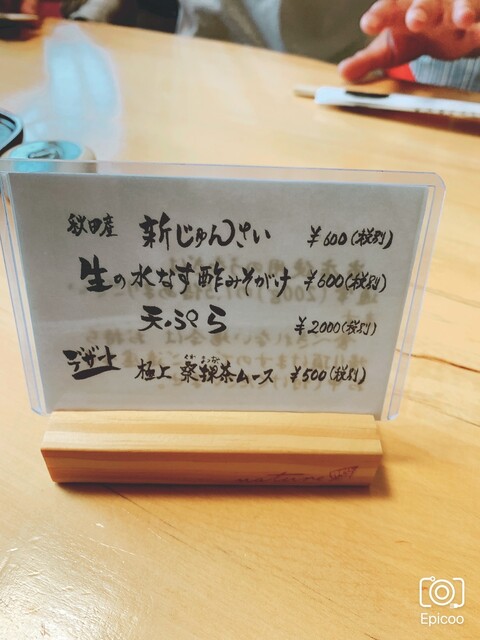 秋田産 新じゅんさい ¥600(税別)
生の水なす酢みそがけ ¥600(税別)
天ぷら ¥2000(税別)
デザート 極上 茶ムース ¥500(税別)
Epicoo